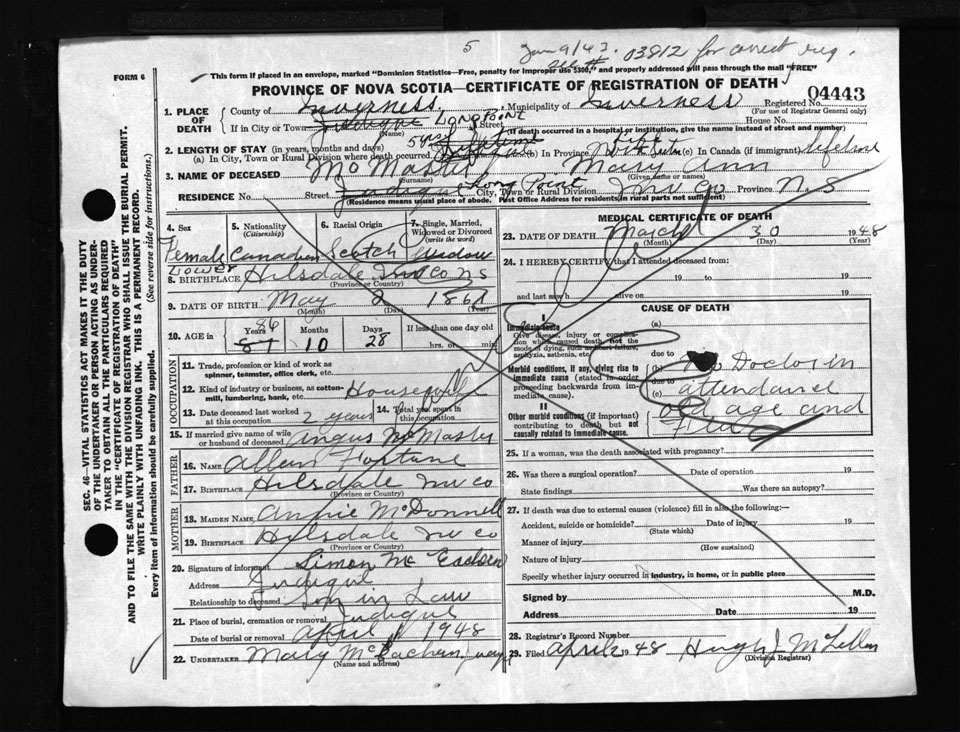 5
038/2 for correct reg.
FORM 6
This form if placed in an envelope, marked "Dominion Statistics—Free, penalty for improper use $300," and properly addressed will pass through the mail "FREE"
PROVINCE OF NOVA SCOTIA—CERTIFICATE OF REGISTRATION OF DEATH
04443
1. PLACE OF DEATH
County of Inverness Municipality of Inverness Registered No.
(For use of Registrar General only)
If in City or Town Judique LONG POINT Street House No.
(Name) (If death occurred in a hospital or institution, give the name instead of street and number)
2. LENGTH OF STAY (in years, months and days)
(a) In City, Town or Rural Division where death occurred (b) In Province (c) In Canada (if immigrant) lifetime
3. NAME OF DECEASED Mc Master Mary Ann
(Surname) (Given name or names)
RESIDENCE No. Street Judique Long Point City, Town or Rural Division Inv Co Province N. S
(Residence means usual place of abode. Post Office Address for residents in rural parts not sufficient)
4. Sex
Female
5. Nationality
(Citizenship)
Canadian
6. Racial Origin
Scotch
7. Single, Married, Widowed or Divorced
(write the word)
Widow
8. BIRTHPLACE Lower Hilsdale Inv Co N S
(Province or Country)
9. DATE OF BIRTH May 2 1861
(Month) (Day) (Year)
10. AGE in
Years 86
Months 10
Days 28
If less than one day old
hrs. or min.
OCCUPATION
11. Trade, profession or kind of work as spinner, teamster, office clerk, etc.
12. Kind of industry or business, as cotton-mill, lumbering, bank, etc.
13. Date deceased last worked at this occupation 2 years
14. Total yrs. spent in this occupation
15. If married give name of wife or husband of deceased Angus McMaster
FATHER
16. NAME Allan
17. BIRTHPLACE Hilsdale Inv Co
(Province or Country)
MOTHER
18. MAIDEN NAME Annie McDonnell
19. BIRTHPLACE Hilsdale Inv Co
(Province or Country)
20. Signature of informant Simon Mc Eachern
Address Judique
Relationship to deceased Son in Law
21. Place of burial, cremation or removal Judique
Date of burial or removal April 1 1948
22. UNDERTAKER Mary McEachern
(Name and address)
MEDICAL CERTIFICATE OF DEATH
23. DATE OF DEATH March 30 1948
(Month) (Day) (Year)
24. I HEREBY CERTIFY that I attended deceased from:
19 to 19
and last saw h alive on 19
CAUSE OF DEATH
I
Immediate cause
Give disease, injury or complication which caused death not the mode of dying, such as heart failure, asphyxia, asthenia, etc.
Morbid conditions, if any, giving rise to immediate cause (stated in order proceeding backwards from immediate cause).
II
Other morbid conditions (if important) contributing to death but not causally related to immediate cause.
(a)
due to
(b) No Doctor in
due to
(c) attendance
old age and
25. If a woman, was the death associated with pregnancy?
26. Was there a surgical operation? Date of operation 19
State findings Was there an autopsy?
27. If death was due to external causes (violence) fill in also the following:—
Accident, suicide or homicide? Date of injury 19
(State which)
Manner of injury
(How sustained)
Nature of injury
Specify whether injury occurred in industry, in home, or in public place
Signed by M.D.
Address Date 19
28. Registrar's Record Number
29. Filed April 2 1948 Hugh J McLellan
(Division Registrar)
SEC. 46—VITAL STATISTICS ACT MAKES IT THE DUTY OF THE UNDERTAKER OR PERSON ACTING AS UNDERTAKER TO OBTAIN ALL THE PARTICULARS REQUIRED IN THE "CERTIFICATE OF REGISTRATION OF DEATH" AND TO FILE THE SAME WITH THE DIVISION REGISTRAR WHO SHALL ISSUE THE BURIAL PERMIT.
WRITE PLAINLY WITH UNFADING INK. THIS IS A PERMANENT RECORD.
Every item of information should be carefully supplied. (See reverse side for instructions.)